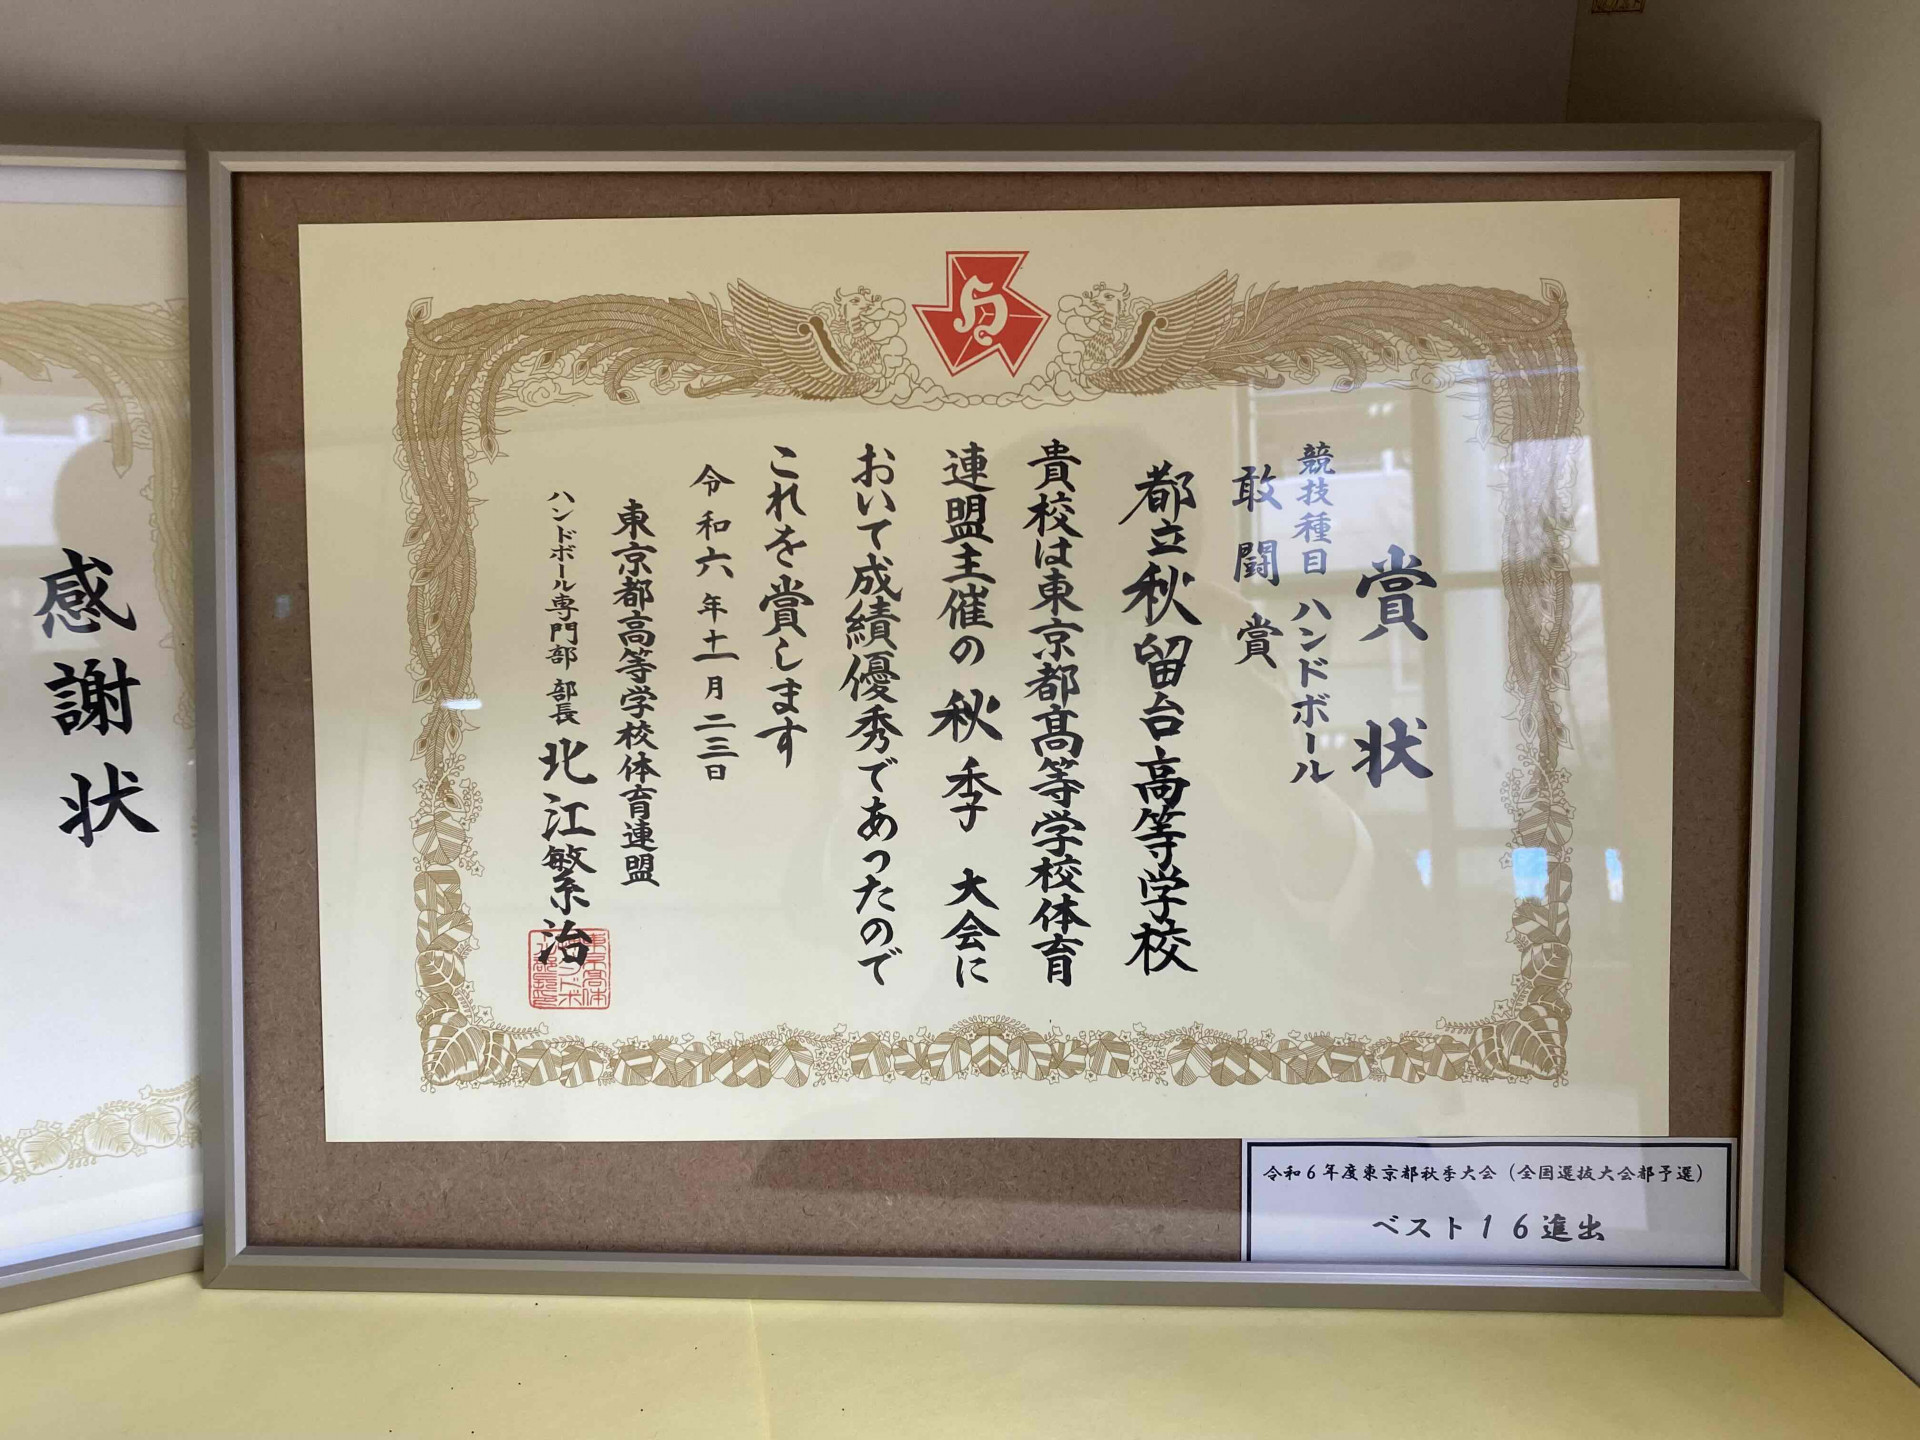 賞状
競技種目 ハンドボール
敢闘賞
都立秋留台高等学校
貴校は東京都高等学校体育
連盟主催の秋季大会に
おいて成績優秀であったので
これを賞します
令和六年十一月二三日
東京都高等学校体育連盟
ハンドボール専門部 部長 北江繁治
令和6年度東京都秋季大会（全国選抜大会都予選）
ベスト16進出
感謝状